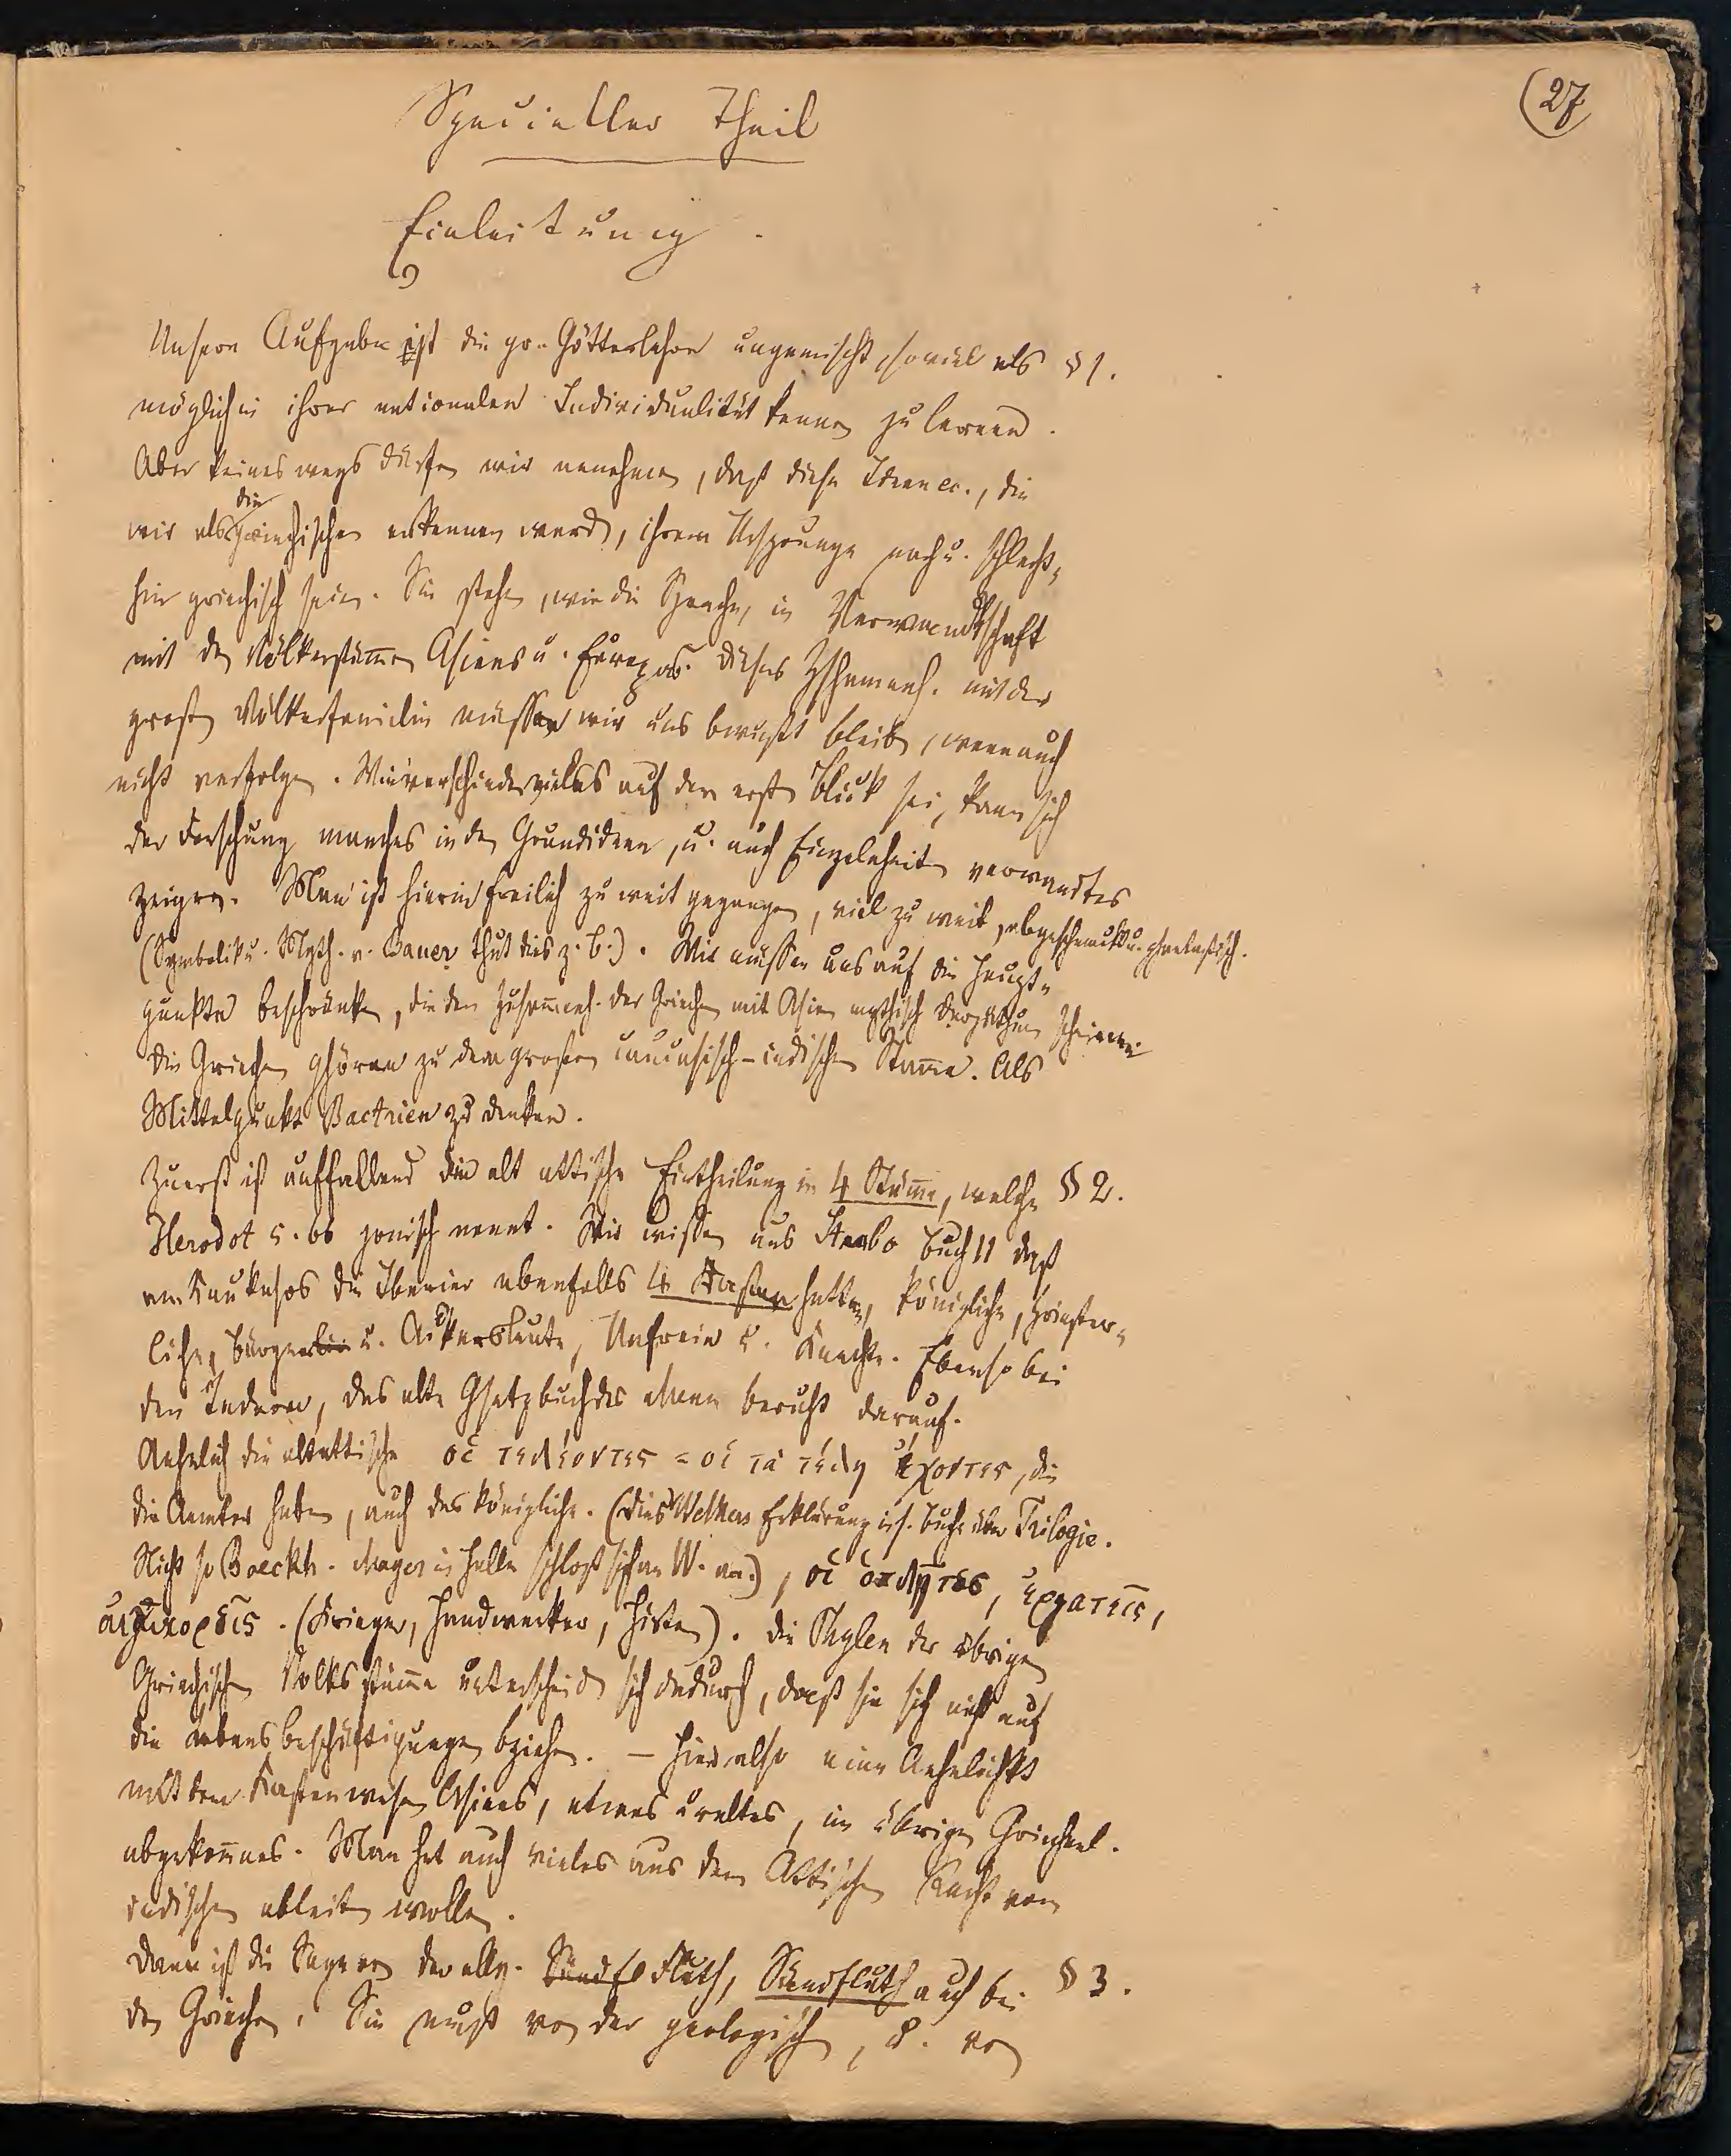 (27
Specieller Theil
Einleitung.
Unsere Aufgabe ist die gr. Götterlehre ungemischt, soviel als § 1.
möglich in ihrer nationalen Individualität kennen zu lernen.
Aber keineswegs dürfen wir annehmen, daß diese Ideen ec., die
wir als die griechischen erkennen werd, ihrem Ursprunge nach u. schlecht-
hin griechisch seien. Sie stehen, wie die Sprache, in Verwandtschaft
mit den Völkerstäm̄en Asiens u. Europas. Dieses Zshanmenh. mit der
großen Völkerfamilie müssen wir uns bewußt bleiben, wenn auch
nicht verfolgen. Wie verschieden vieles auf den ersten Blick sei, kann sich
der Forschung manches in den Grundideen, u. auch Einzelnheiten verwandtes
zeigen. Man ist hierin freilich zu weit gegangen, viel zu weit, abgeschmackt u. phantastisch.
(Symbolik u. Myth. v. Bauer thut dies z. B.). Wir müssen uns auf die Haupt-
punkte beschränken, die den Zusam̄enh. der Griechen mit Asien mythisch darzuthun scheinen
Die Griechen gehören zu dem großen caucasisch-indischen Stam̄e. Als
Mittelpunkt Bactrien zu denken.
Zuerst ist auffallend die alt attische Eintheilung in 4 Stäm̄e, welche § 2.
Herodot 5. 66 jonisch nennt. Wir wissen aus Strabo Buch 11 daß
am Kaukasos die Iberier ebenfalls 4 Kasten hatten, königliche, priester-
liche, Bürger u. Ackersleute, Unfreie u. Knechte. Ebenso bei
den Indern, das alte Gsetzbuch des Manu beruht darauf.
Aehnlich die altattische οἱ τελέοντες = οἱ τὰ τέλη ἔχοντες, die
die Aemter haben, auch das königliche. (Dies Welkers Erklärung in s. Buche über Trilogie.
Nicht so Boeckh. Mayer in Halle schloß sich an W. an.), οἱ ὁπλῆτες, ἐργατεῖς,
αἰγικορεῖς. (Krieger, Handwerker, Hirten). Die Phylen der übrigen
Griechischen Volksstäm̄e unterscheiden sich dadurch, daß sie sich nicht auf
die Lebensbeschäftigungen beziehen. – Hier also eine Aehnlichkt
mit dem Kastenwesen Asiens, etwas uraltes, im übrigen Griechenl.
abgekom̄nes. Man hat auch vieles aus dem Attischen Recht vom
indischen ableiten wollen.
Dann ist die Sage von der allg. Fluth, Sündfluth auch bei § 3.
den Griechen. Sie muß von der geologischen, u. von